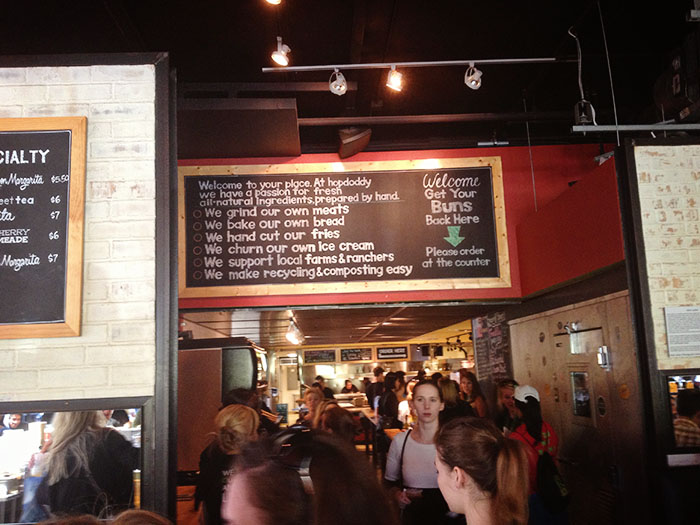 CIALTY
Margarita $5.50
eet tea $6
$7
HERRY
MEADE $6
Margarita $7
Welcome to your place. At hopdoddy
we have a passion for fresh
all-natural ingredients, prepared by hand.
We grind our own meats
We bake our own bread
We hand cut our fries
We churn our own ice cream
We support local farms & ranchers
We make recycling & composting easy
Welcome
Get Your
Buns
Back Here
Please order
at the counter
ORDER HERE